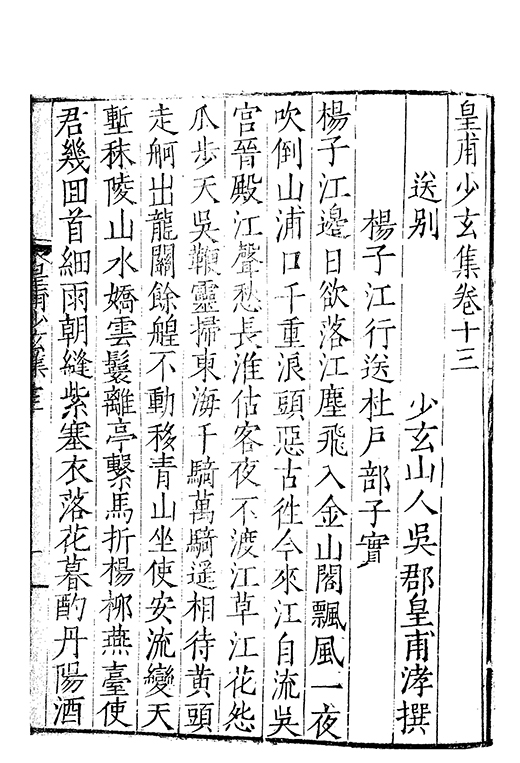 皇甫少玄集卷十三
送别　少玄山人吳郡皇甫涍撰
楊子江行送杜戸部子實
楊子江邊日欲落江塵飛入金山閣飄風一夜
吹倒山浦口千重浪頭惡古徃今來江自流吳
宫晉殿江聲愁長淮估客夜不渡江草江花怨
瓜步天吳鞭靈掃東海千騎萬騎遥相待黄頭
走舸出龍關餘艎不動移青山坐使安流變天
塹秣陵山水嬌雲鬟離亭繫馬折楊栁燕臺使
君幾囬首細雨朝縫紫塞衣落花暮酌丹陽酒
皇甫少玄集